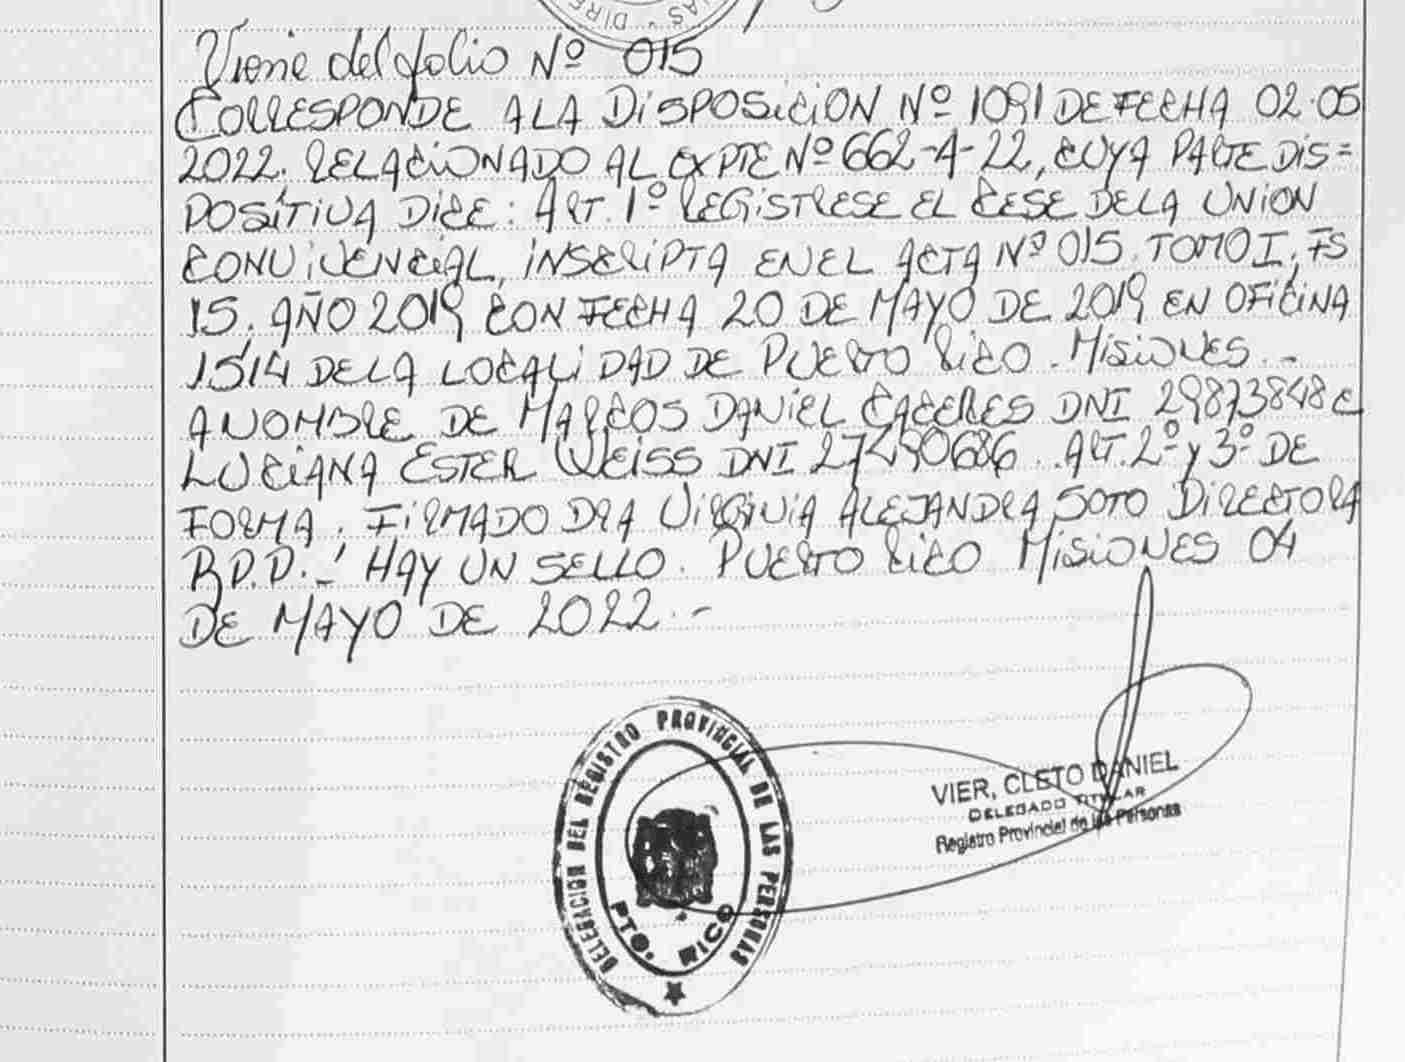 Viene del folio Nº 015
CORRESPONDE A LA DISPOSICION Nº 1091 DE FECHA 02.05
2022. RELACIONADO AL EXPTE Nº 662-A-22, CUYA PARTE DIS=
POSITIVA DICE: ART. 1º REGISTRESE EL CESE DE LA UNION
CONVIVENCIAL, INSCRIPTA EN EL ACTA Nº 015. TOMO I, FS
15. AÑO 2019 CON FECHA 20 DE MAYO DE 2019 EN OFICINA
1514 DE LA LOCALIDAD DE PUERTO RICO. MISIONES.-
A NOMBRE DE MARCOS DANIEL CACERES DNI 29873848 E
LUCIANA ESTER WEISS DNI 27490686. ART. 2º y 3º DE
FORMA. FIRMADO DRA VIRGINIA ALEJANDRA SOTO DIRECTORA
R.P.P.- HAY UN SELLO. PUERTO RICO MISIONES 04
DE MAYO DE 2022.-
DELEGACION DEL REGISTRO PROVINCIAL DE LAS PERSONAS
PTO. RICO
VIER, CLETO DANIEL
DELEGADO TITULAR
Registro Provincial de las Personas